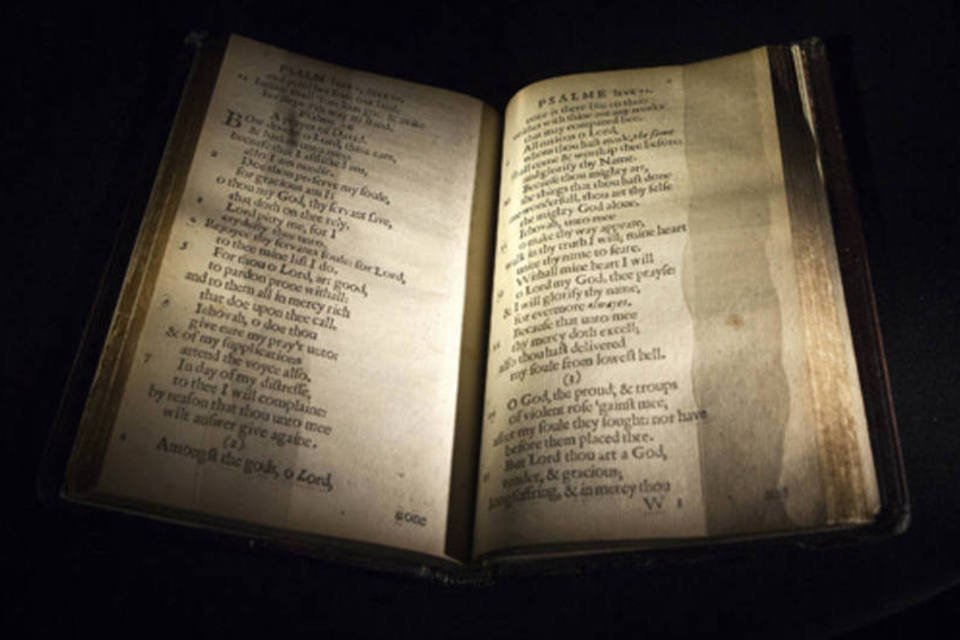 PSALM
and
ſhall
his ſteps
Pſalme 86
A prayer of David.
BOw downe o Lord, thine eare,
& hearken unto mee:
becauſe that I afflicted am,
alſo I am needie.
2 Doe thou preſerve my ſoule,
for gracious am I:
o thou my God, thy ſervant ſave,
that doth on thee rely.
3 Lord pitty me, for I
dayly cry thee unto.
4 Rejoyce thy ſervants ſoule: for Lord,
to thee mine lift I do.
5 For thou o Lord, art good,
to pardon prone withall:
and to them all in mercy rich
that doe upon thee call.
6 Iehovah, o doe thou
give eare my pray'r unto:
& of my ſupplications
attend the voyce alſo.
7 In day of my diſtreſſe,
to thee I will complaine:
by reaſon that thou unto mee
wilt anſwer give againe.
(2)
8 Amongſt the gods, o Lord,
none
PSALME lxxxvi.
none is there like to thee:
neither with thine are any works
that may compared bee.
All nations o Lord,
whom thou haſt made, the ſame
ſhall come & worſhip thee before:
and glorify thy Name.
10 Becauſe thou mighty art,
the things that thou haſt done
are wonderfull, thou art thy ſelfe
the mighty God alone.
Iehovah, unto mee
o make thy way appeare,
walk in thy truth I will; mine heart
unite thy name to feare.
Withall mine heart I will
o Lord my God, thee prayſe:
& I will glorify thy name,
for evermore alwayes.
Becauſe that unto mee
thy mercy doth excell;
alſo thou haſt delivered
my ſoule from loweſt hell.
(3)
O God, the proud, & troups
of violent roſe 'gainſt mee,
after my ſoule they ſought: nor have
before them placed thee.
But Lord thou art a God,
tender, & gracious;
longſuffring, & in mercy thou
W